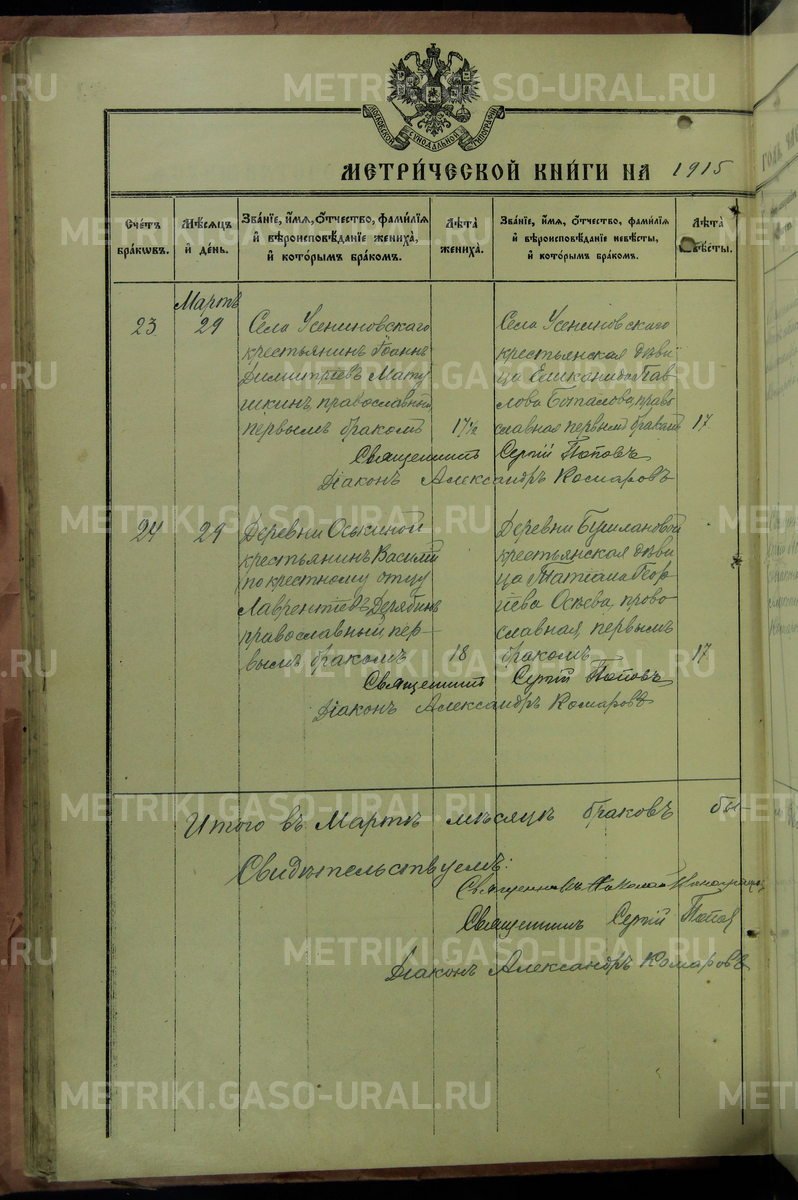 МОСКОВСКОЙ СѴНОДАЛЬНОЙ ТИПОГРАФІИ
МЕТРИ́ЧЕСКОЙ КНИ́ГИ НА 1915
Сче́тъ бра́ковъ.
Мѣ́сяцъ и де́нь.
Зва́нїе, и́мѧ, о́тчество, фами́лїѧ и вѣроисповѣ́данїе жениха́, и кото́рымъ бра́комъ.
Лѣ́та жениха́.
Зва́нїе, и́мѧ, о́тчество, фами́лїѧ и вѣроисповѣ́данїе невѣ́сты, и кото́рымъ бра́комъ.
Лѣ́та невѣ́сты.
Мартъ
23 29
Села Усениновскаго
крестьянинъ Іоаннъ
Димитріевъ Мату
шкинъ, православный
первымъ бракомъ
17½
Села Усениновскаго
крестьянская дѣви
ца Павлова, право
славная первымъ бракомъ 17
Священникъ Сергій Поповъ
Діаконъ Александръ Комаровъ
24 29
Деревни Оськиной
крестьянинъ Василій
по крестному отцу
Лаврентіевъ Дерябинъ
православный пер
вымъ бракомъ
18
Деревни
крестьянская дѣви
ца Татіана Геор
гіева, право
славная, первымъ
бракомъ 17
Священникъ Сергій Поповъ
Діаконъ Александръ Комаровъ
Итого въ Мартѣ мѣсяцѣ браковъ
Свидѣтельствуемъ:
Священникъ Николай
Священникъ Сергій Попов
Діаконъ Александръ Комаровъ
METRIKI.GASO-URAL.RU